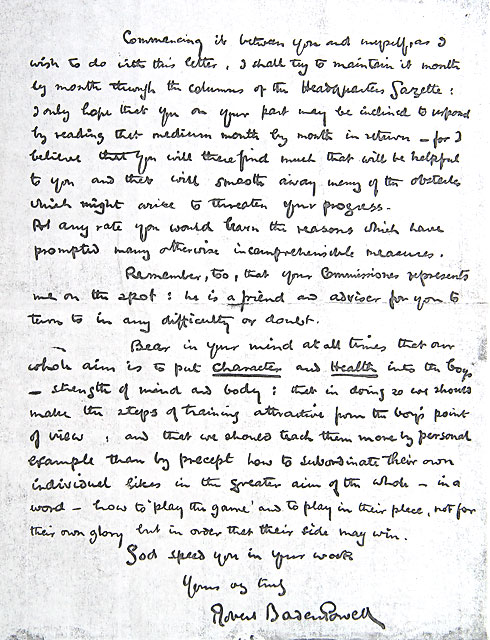 Commencing it between you and myself, as I
wish to do with this letter, I shall try to maintain it month
by month through the columns of the Headquarters Gazette:
I only hope that you on your part may be inclined to respond
by reading that medium month by month in return – for I
believe that you will there find much that will be helpful
to you and that will smooth away many of the obstacles
which might arise to threaten your progress.
At any rate you would learn the reasons which have
prompted many otherwise incomprehensible measures.
Remember, too, that your Commissioner represents
me on the spot: he is a friend and adviser for you to
turn to in any difficulty or doubt.
Bear in your mind at all times that our
whole aim is to put Character and Health into the boys
– strength of mind and body; that in doing so we should
make the steps of training attractive from the boy's point
of view; and that we should teach them more by personal
example than by precept how to subordinate their own
individual likes in the greater aim of the whole – in a
word – how to 'play the game' and to play in their place, not for
their own glory but in order that their side may win.
God speed you in your work
Yours truly
Robert Baden Powell